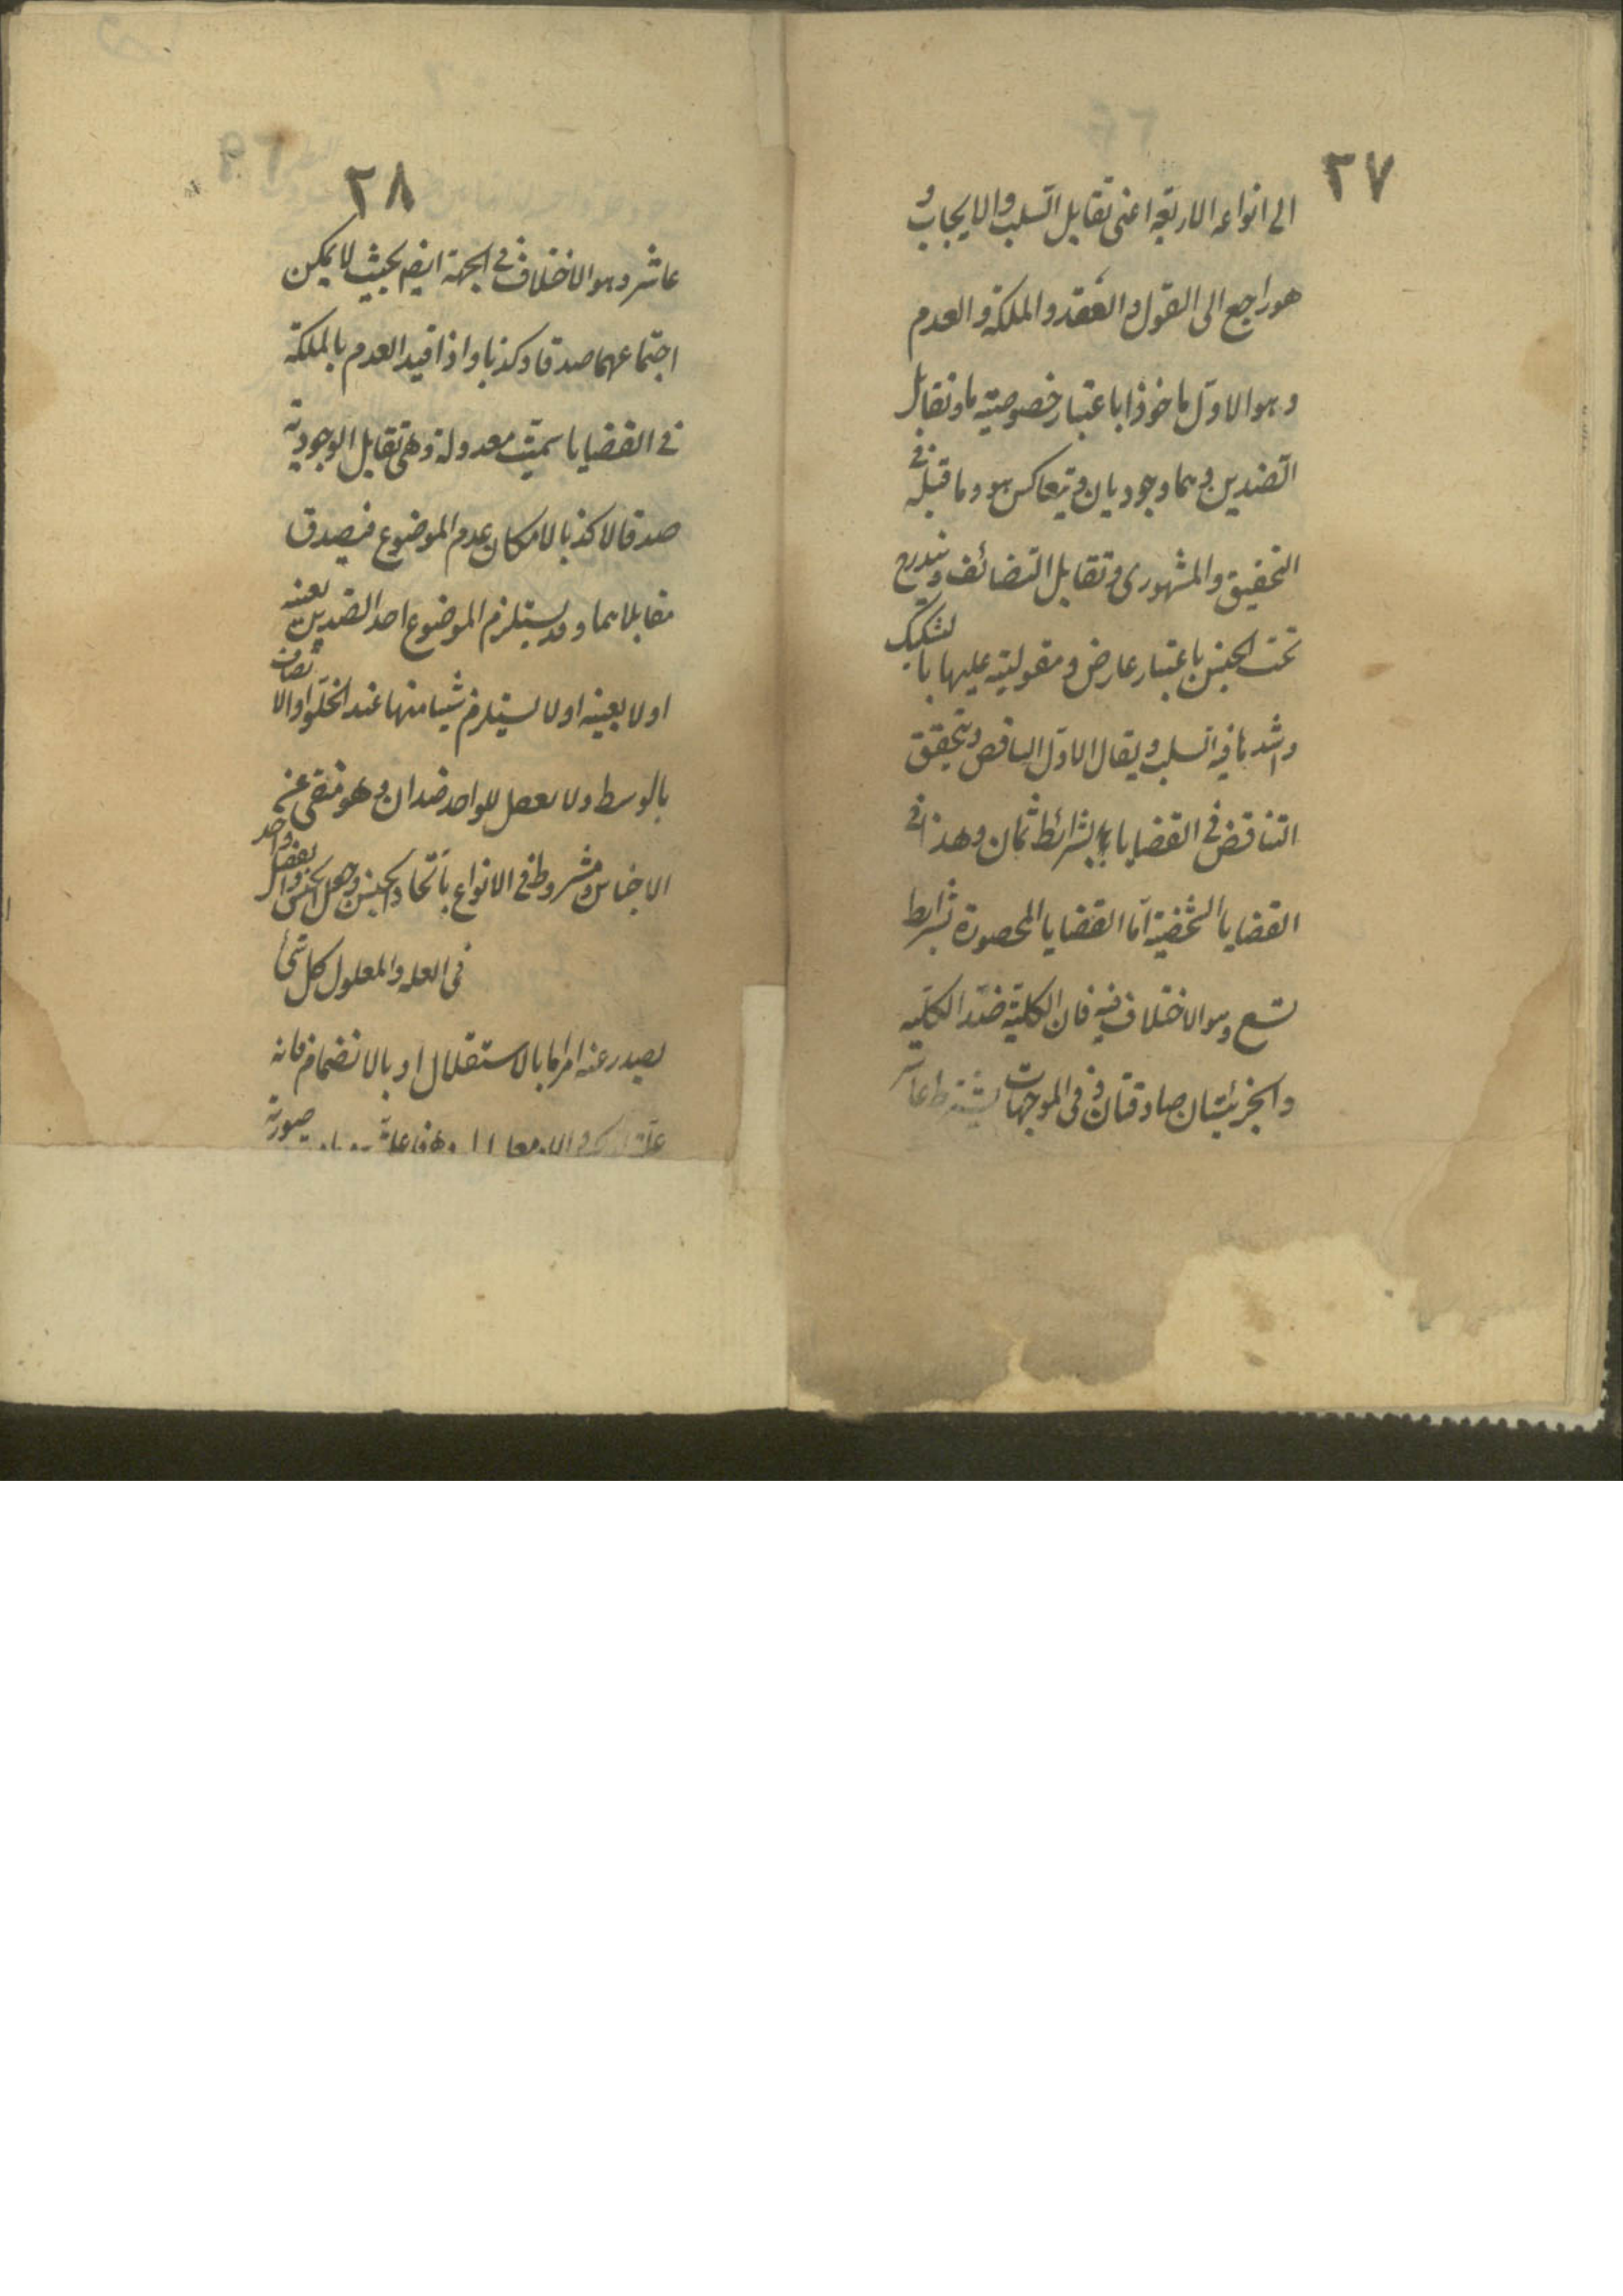 ٢٧
الى انواعه الاربعة اعنى تقابل السلب والايجاب و
هو راجع الى القول والعقد والملكة والعدم
وهو الاول ماخوذا باعتبار خصوصية ما وتقابل
الضدين وهما وجوديان ويتعاكس هو وما قبله فى
التحقيق والمشهورى وتقابل التضائف ويندرج
تحت الجنس باعتبار عارض ومقوليته عليها بالتشكيك
واشدها فيه السلب ويقال للاول التناقض ويتحقق
التناقض فى القضايا بشرائط ثمان وهذا فى
القضايا الشخصية اما القضايا المحصورة بشرايط
تسع وهو الاختلاف فيه فان الكلية ضد الكلية
والجزئيتان صادقتان وفى الموجهات يشترط عاشر
٢٨
عاشر وهو الاختلاف فى الجهة ايضا بحيث لا يمكن
اجتماعهما صدقا وكذبا واذا قيد العدم بالملكة
فى القضايا سميت معدولة وهى تقابل الوجودية
صدقا لا كذبا لامكان عدم الموضوع فيصدق
مقابلاهما وقد يستلزم الموضوع احد الضدين بعينه
اولا بعينه اولا يستلزم شيئا منهما عند الخلو او الاتصاف
بالوسط ولا يعقل للواحد ضدان وهو منفى عن
الاجناس ومشروط فى الانواع باتحاد الجنس وجعل الجنس والفصل واحد
فى العله والمعلول كل شئ
يصدر عنه امر اما بالاستقلال او بالانضمام فانه
صورية